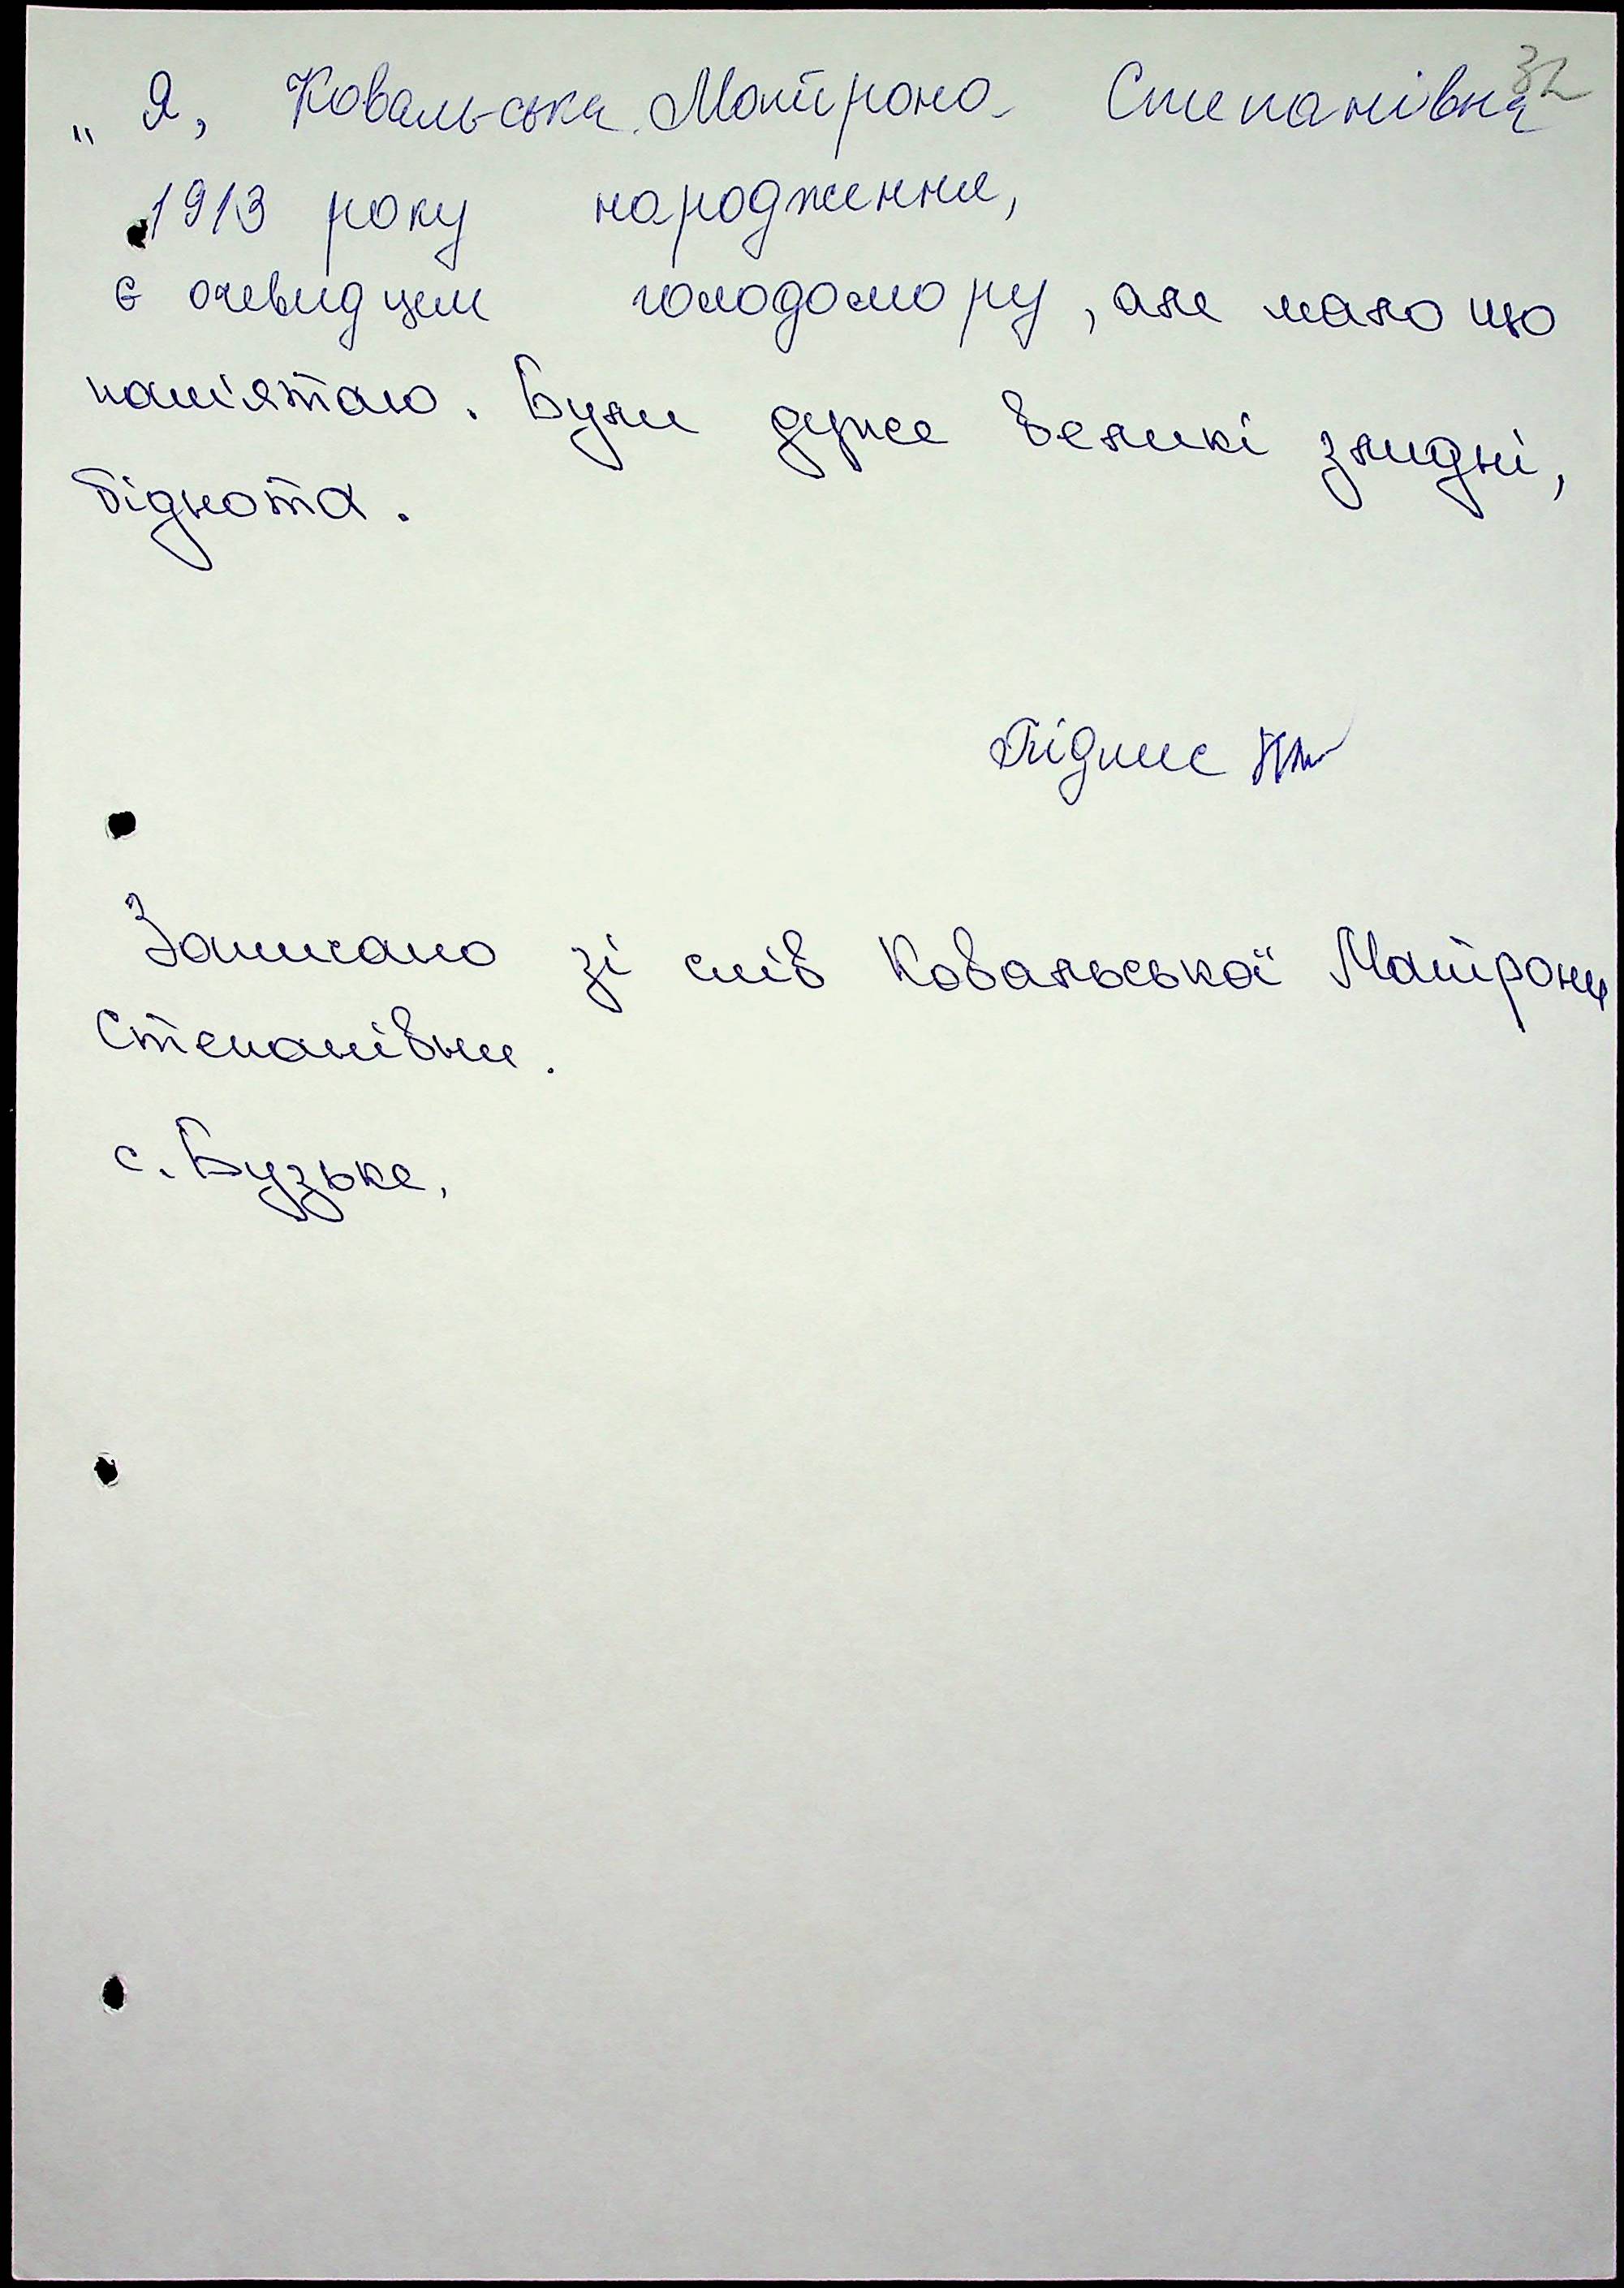 32
„ Я, Ковальська Мотрона Степанівна
1913 року народження,
є очевидцем голодомору, але мало що
пам'ятаю. Були дуже великі злидні,
біднота.
Підпис
Записано зі слів Ковальської Матрони
Степанівни.
с. Бузьке,